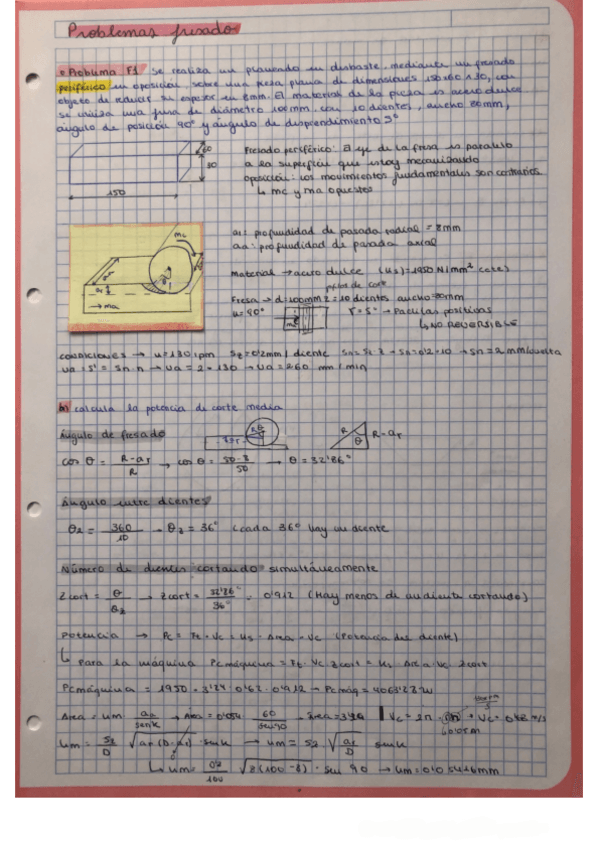 Problemas fresado
• Problema F1 Se realiza un planeado en desbaste mediante un fresado
periférico en oposición, sobre una pieza plana de dimensiones 150x60x30, con
objeto de reducir su espesor en 8mm. El material de la pieza es acero dulce
se utiliza una fresa de diámetro 100mm con 10 dientes, ancho 80mm,
ángulo de posición 90° y ángulo de desprendimiento 5°
60
150
Fresado periférico: El eje de la fresa es paralelo
a la superficie que estoy mecanizando
oposición: los movimientos fundamentales son contrarios
↳ mc y ma opuestos
mc
ma
ar: profundidad de pasada radial = 8mm
aa: profundidad de pasada axial
Material → acero dulce (us)=1950 N/mm²
Fresa → d=100mm z=10 dientes ancho=80mm
γ=5° → Placas positivas
↳ NO REVERSIBLE
condiciones → n=130 rpm Sz=0'2mm/diente Sn=Sz·z → Sn=0'2·10 → Sn=2mm/vuelta
Va=S'=Sn·n → Va=2·130 → Va=260 mm/min
b) calcula la potencia de corte media
Ángulo de fresado
R θ
R θ R-ar
cos θ = R-ar / R → cos θ = 50-8 / 50 → θ = 32'86°
Ángulo entre dientes
θz = 360 / 10 → θz = 36° (cada 36° hay un diente
Número de dientes cortando simultáneamente
Zcort = θ / θz → Zcort = 32'86° / 36° = 0'912 (Hay menos de un diente cortando)
Potencia → Pc = Ft · Vc = us · Área · Vc (Potencia del diente)
↳ Para la máquina Pcmáquina = Ft · Vc · Zcort = us · Área · Vc · Zcort
Área = um aa / senk → Área = 0'054 · 60 / sen90
um = Sz / D √ar(D-ar) · senk → um = Sz √ar / D senk
↳ um = 0'2 / 100 √8(100-8) · sen 90 → um = 0'05426mm